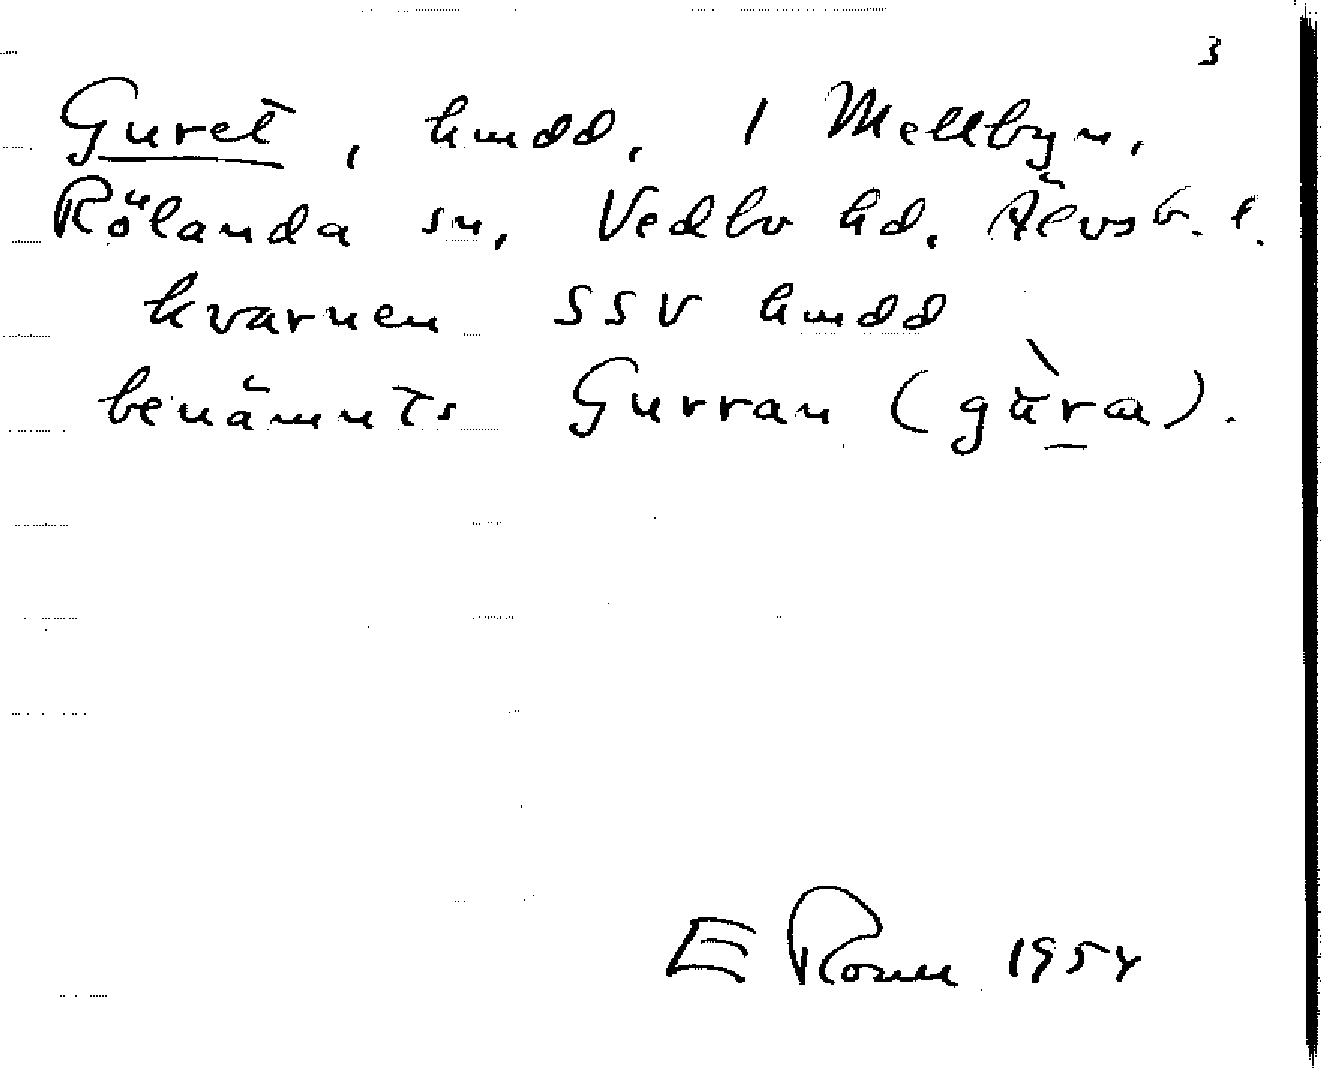 3
Guret, hmdd, 1 Mellbyn,
Rölanda sn, Vedbo hd, Älvsb. l.
kvarnen SSV hmdd
benämnts Gurran (gùra).
E Rosell 1954